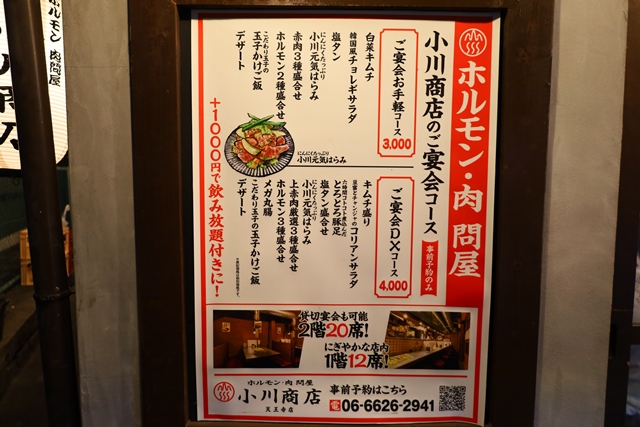 ホルモン・肉 問屋
小川商店のご宴会コース
事前予約のみ
ご宴会お手軽コース
3,000
白菜キムチ
韓国風チョレギサラダ
塩タン
にんにくたっぷり
小川元気はらみ
赤肉3種盛合せ
ホルモン2種盛合せ
こだわり玉子の
玉子かけご飯
デザート
にんにくたっぷり
小川元気はらみ
ご宴会DXコース
4,000
キムチ盛り
豆富とチャンジャのコリアンサラダ
とろとろ豚足
塩タン盛合せ
にんにくたっぷり
小川元気はらみ
上赤肉厳選3種盛合せ
ホルモン3種盛合せ
メガ丸腸
こだわり玉子の玉子かけご飯
デザート
+1000円で飲み放題付きに!
貸切宴会も可能
2階20席!
にぎやかな店内
1階12席!
ホルモン・肉 問屋
小川商店
天王寺店
事前予約はこちら
06-6626-2941
ホルモン 肉問屋